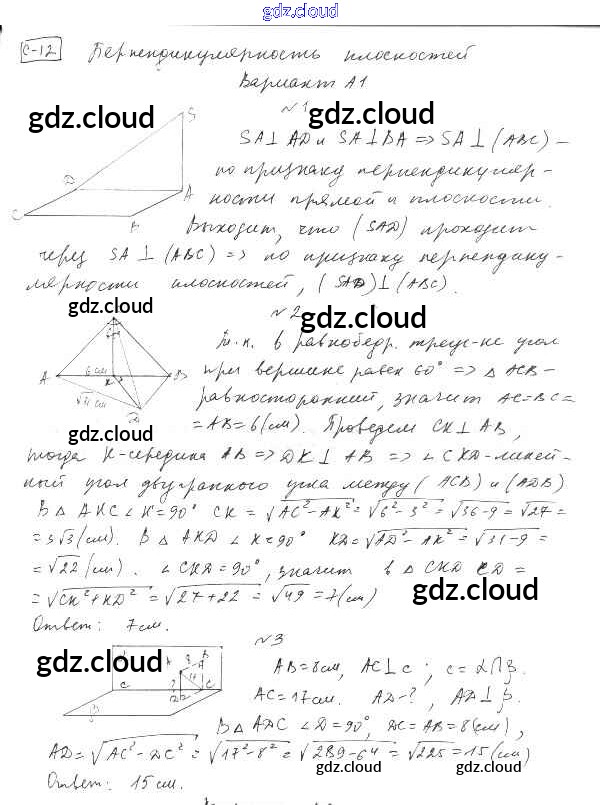 gdz.cloud
С-12 Перпендикулярность плоскостей
Вариант А1
gdz.cloud gdz.cloud
№1
S
D
A
C
B
SA⊥AD и SA⊥BA => SA⊥(ABC) –
по признаку перпендикуляр-
ности прямой и плоскости.
Выходит, что (SAD) проходит
через SA⊥(ABC) => по признаку перпендику-
лярности плоскостей, (SAD)⊥(ABC).
gdz.cloud gdz.cloud
№2
A
6 см
K
B
√31 см
D
Т.к. в равнобедр. треуг-ке угол
при вершине равен 60° => △ACB –
равносторонний, значит AC=BC=
=AB=6(см). Проведем CK⊥AB,
gdz.cloud gdz.cloud
тогда K-середина AB => DK⊥AB => ∠CKD-линей-
ный угол двугранного угла между (ACB) и (ADB)
В △AKC ∠K=90° CK=√AC²-AK²=√6²-3²=√36-9=√27=
=3√3(см). В △AKD ∠K=90° KD=√AD²-AK²=√31-9=
=√22(см). ∠CKD=90°, значит в △CKD CD=
gdz.cloud gdz.cloud
=√CK²+KD²=√27+22=√49=7(см)
Ответ: 7см.
№3
gdz.cloud gdz.cloud
AB=8см, AC⊥c; c=α∩β.
AC=17см. AD-?, AD⊥β.
В △ADC ∠D=90°, DC=AB=8(см),
AD=√AC²-DC²=√17²-8²=√289-64=√225=15(см)
gdz.cloud gdz.cloud
Ответ: 15см.